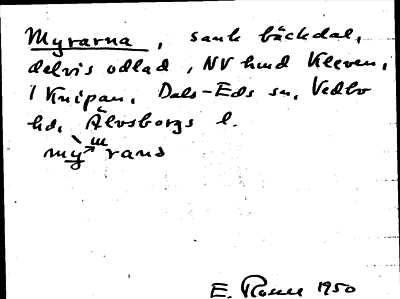 Myrarna, sank bäckdal,
delvis odlad, NV Kleven,
1 Knipan. Dals-Eds sn, Vedbo
hd, Älvsborgs l.
E. 1950